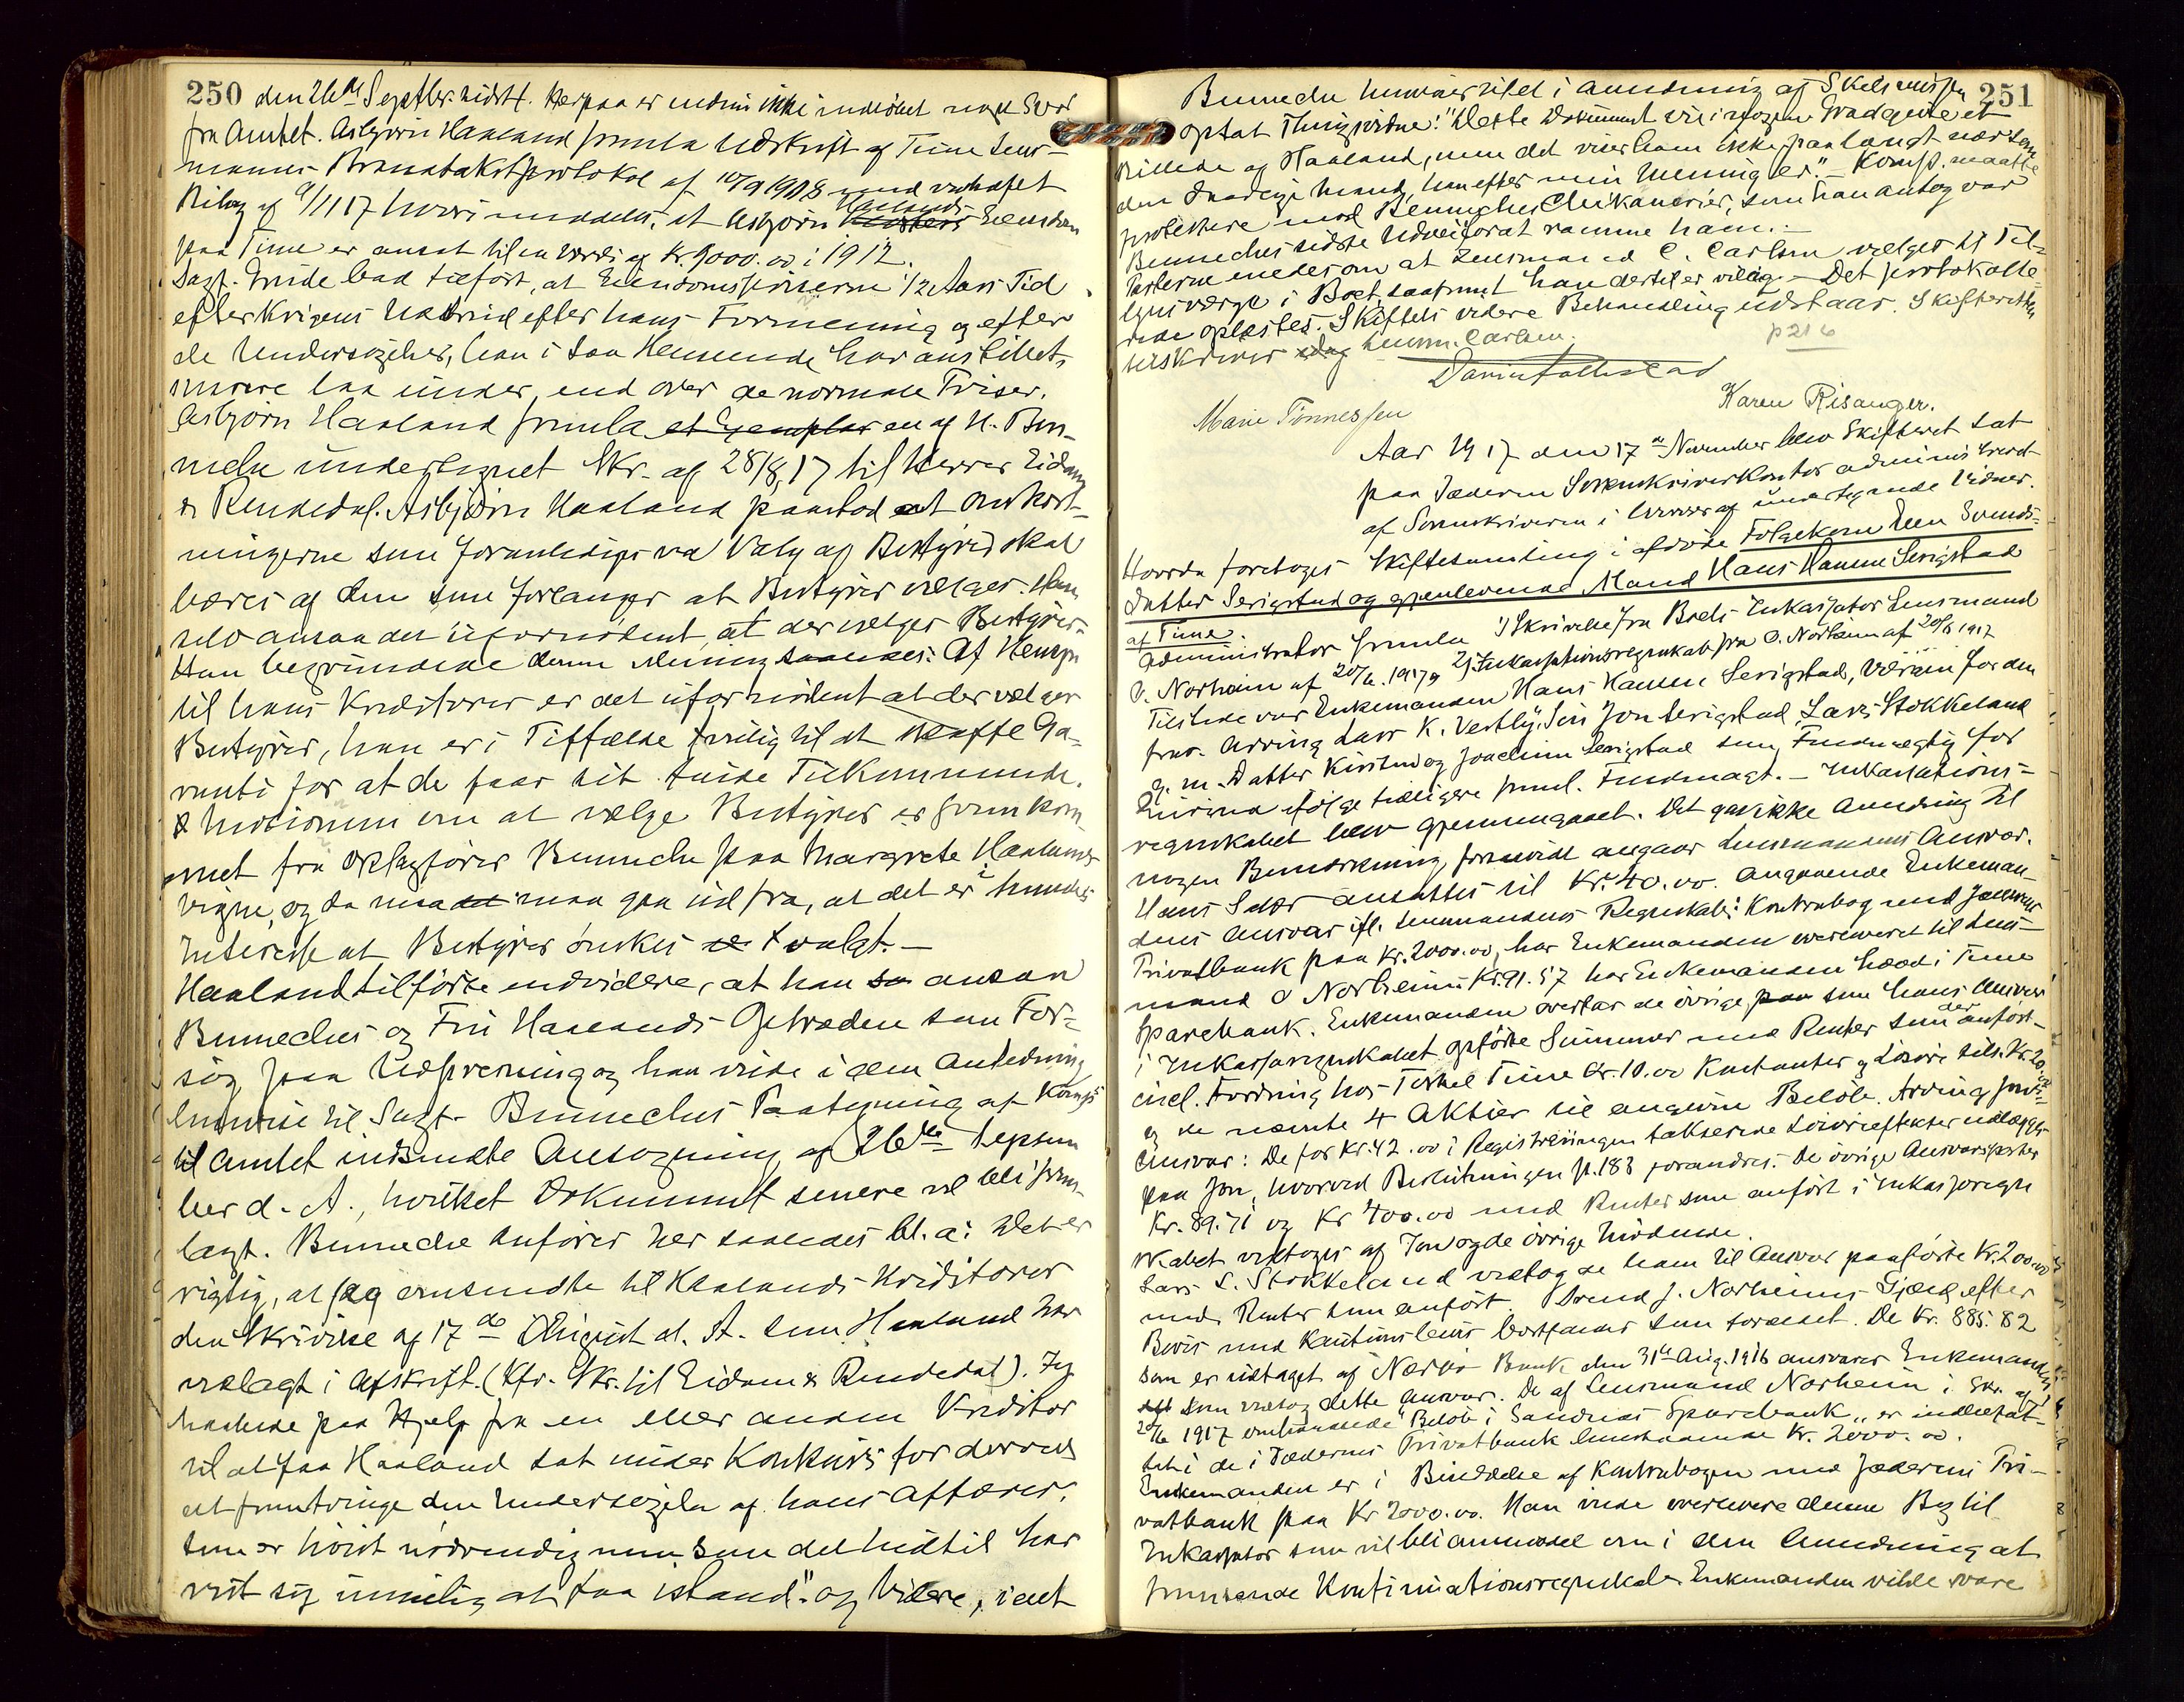 250 den 26de Septbr. sidstl. Herpaa er endnu ikke indløbet noget Svar
fra Amtet. Asbjørn Haaland fremla Udskrift af Time Lens-
mands Branntakstprotokol af 10/9 1908 med vedhæftet
Bilag af 9/11 17 hvori meddeles, at Asbjørn Haalands Eiendom
paa Time er ansat til en Værdi af Kr. 9000.00 i 1912.
Sagf. Eide bad tilført, at Eiendomspriserne 1/2 Aars Tid
efter Krigens Udbrud efter hans Formening og efter
de Undersøgelser, han i saa Henseende har anstillet,
snarere laa under, end over de normale Priser.
Asbjørn Haaland fremla et Exemplar en af H. Ben-
neche undertegnet Skr. af 28/8, 17 til Herrer Eidam
& Rendedal. Asbjørn Haaland paastod at Omkost-
ningerne som foranlediges ved Valg af Bestyrer skal
bæres af den som forlanger at Bestyrer vælges. Han
selv ansaa det ufornødent, at der vælges Bestyrer.
Han begrundede denne Mening saaledes: Af Hensyn
til hans Kreditorer er det ufornødent at der vælges
Bestyrer, han er i Tilfælde villig til at skaffe Ga-
ranti for at de faar sit fulde Tilkommende.
Motionen om at vælge Bestyrer er fremkom-
met fra Sagfører Benneche paa Margrete Haalands
vegne, og da maa man gaa ud fra, at det er i hendes
Interesse at Bestyrer ønskes valgt. —
Haaland tilførte endvidere, at han ansaa
Benneches og Fru Haalands Optræden som For-
søg paa Udpresning og han vilde i den Anledning
henvise til Sagf. Benneches Paategning af Komp.
til Amtet indsendte Ansøgning af 26de Septem
ber d. A., hvilket Dokument senere vil bli frem-
lagt. Benneche anfører her saaledes bl. a: Det er
rigtig, at jeg omsendte til Haalands Kreditorer
den Skrivelse af 17de August d. A. som Haaland har
vedlagt i Afskrift. (Kfr. Skr. til Eidam & Rendedal). Jeg
haabede paa Hjelp fra en eller anden Kreditor
til at faa Haaland sat under Konkurs for derved
at fremtvinge den Undersøgelse af hans Affærer,
som er høist nødvendig men som det hidtil har
vist sig umulig at faa istand." og videre, i det
251
Benneche henviser til et i Anledning af Skilsmissen
optat Thingsvidne: "Dette Dokument vil i nogen Grad give et
Billede af Haaland, men det viser ham ikke paa langt nær som
den farlige Mand, han efter min Mening er." — Komp. maatte
protestere mod Benneches Chikanerier, som han antog var
Benneches sidste Udvei for at ramme ham. —
Parterne enedes om at Lensmand C. Carlsen vælges til Til-
synsværge i Boet, saafremt han dertil er villig. — Det protokolle-
rede oplæstes. Skiftets videre Behandling udstaar. Skifteretten
p 216
Marie Tønnessen
Karen Risanger.
Aar 1917 den 17de November blev Skifteret sat
paa Jæderen Sorenskriverkontor administreret
af Sorenskriveren i Overvær af undertegnede Vidner.
Hvorda foretoges Skiftesamling i afdøde Følgekone Elen Svends-
datter Serigstad og gjenlevende Mand Hans Hansen Serigstad
af Time.
Administrator fremla 1) Skrivelse fra Boets Inkassator Lensmand
O. Norheim af 20/6. 1917 og 2) Inkassationsregnskab fra O. Norheim af 20/6 1917
Tilstede var Enkemanden Hans Hansen Serigstad, Værgen for den
frav. Arving Lars K. Vestly, Søn Jon Serigstad, Lars Stokkeland
g. m. Datter Kirstine og Joachim Serigstad som Fuldmægtig for
Lurina ifølge tidligere freml. Fuldmagt. — Inkassations-
regnskabet blev gjennemgaaet. Det gav ikke Anledning til
nogen Bemærkning forsaavidt angaar Lensmandens Ansvar.
Hans Salær ansattes til Kr. 40.00. Angaaende Enkeman-
dens Ansvar ifl. Lensmandens Regnskab: Kontrabog med Jæderens
Privatbank paa Kr. 2000.00, har Enkemanden overleveret til Lens-
mand O Norheim Kr. 91.57 har Enkemanden hævd i Time
Sparebank. Enkemanden overtar de øvrige som hans Ansvar
i Inkassoregnskabet opførte Summer med Renter som der anført-
incl. Fordring hos Torkel Time Kr. 10.00 Kontanter og Løsøre tils. Kr. 20.00
og de nævnte 4 Aktier til angivne Beløb. Arving Jons
Ansvar: De for Kr. 42.00 i Registreringen takserede Løsøreeffekter udlægges
paa Jon, hvorved Beslutningen p. 183 forandres. De øvrige Ansvarsposter
Kr. 89.71 og Kr 400.00 med Renter som anført i Inkassoregn-
skabet vedtoges af Jon og de øvrige Mødende.
Lars L. Stokkeland vedtog de ham til Ansvar paaførte Kr. 200.00
med Renter som anført. Svend J. Norheims Gjæld efter
Bevis med Kautionsbevis bortfalder som foreldet. De Kr. 885.82
som er udtaget af Nærbø Bank den 31te Aug. 1916 ansvarer Enkemanden
som vedtog dette Ansvar. De af Lensmand Norheim i Skr. af
20/6 1917 omhandlede "Beløb i Sandnes Sparebank" er indbefat-
tet i de i Jæderens Privatbank henstaaende Kr. 2000.00.
Enkemanden er i Besiddelse af Kontrabogen med Jæderens Pri-
vatbank paa Kr 2000.00. Han vilde overlevere denne Bog til
Inkassator som vil bli anmodet om i den Anledning at
fremsende Kontinuationsregnskab. Enkemanden vilde svare